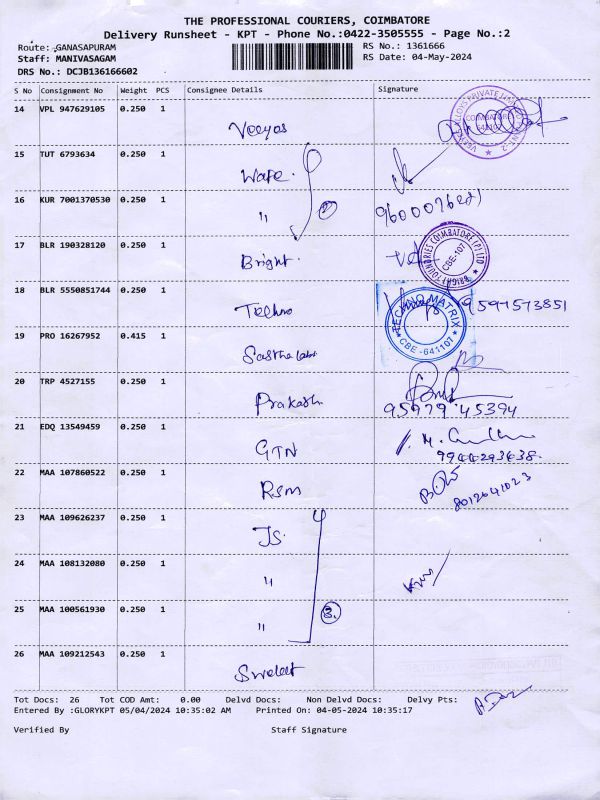 THE PROFESSIONAL COURIERS, COIMBATORE
Delivery Runsheet - KPT - Phone No.:0422-3505555 - Page No.:2
Route: GANASAPURAM RS No.: 1361666
Staff: MANIVASAGAM RS Date: 04-May-2024
DRS No.: DCJB136166602
S No Consignment No Weight PCS Consignee Details Signature
14 VPL 947629105 0.250 1
Veeyas
COIMBATORE
15 TUT 6793634 0.250 1
Ware.
16 KUR 7001370530 0.250 1
"
17 BLR 190328120 0.250 1
Bright.
BRIGHT FOUNDRIES COIMBATORE (P) LTD
CBE-107
18 BLR 5550851744 0.250 1
Techno 9597573851
TECHNO MATRIX
CBE-641107
19 PRO 16267952 0.415 1
Sastha
20 TRP 4527155 0.250 1
Prakash 95979 45394
21 EDQ 13549459 0.250 1
GTN
9944293638.
22 MAA 107860522 0.250 1
RSM 8012641023
23 MAA 109626237 0.250 1
JS.
24 MAA 108132080 0.250 1
"
25 MAA 100561930 0.250 1
" 3.
26 MAA 109212543 0.250 1
Tot Docs: 26 Tot COD Amt: 0.00 Delvd Docs: Non Delvd Docs: Delvy Pts:
Entered By :GLORYKPT 05/04/2024 10:35:02 AM Printed On: 04-05-2024 10:35:17
Verified By Staff Signature